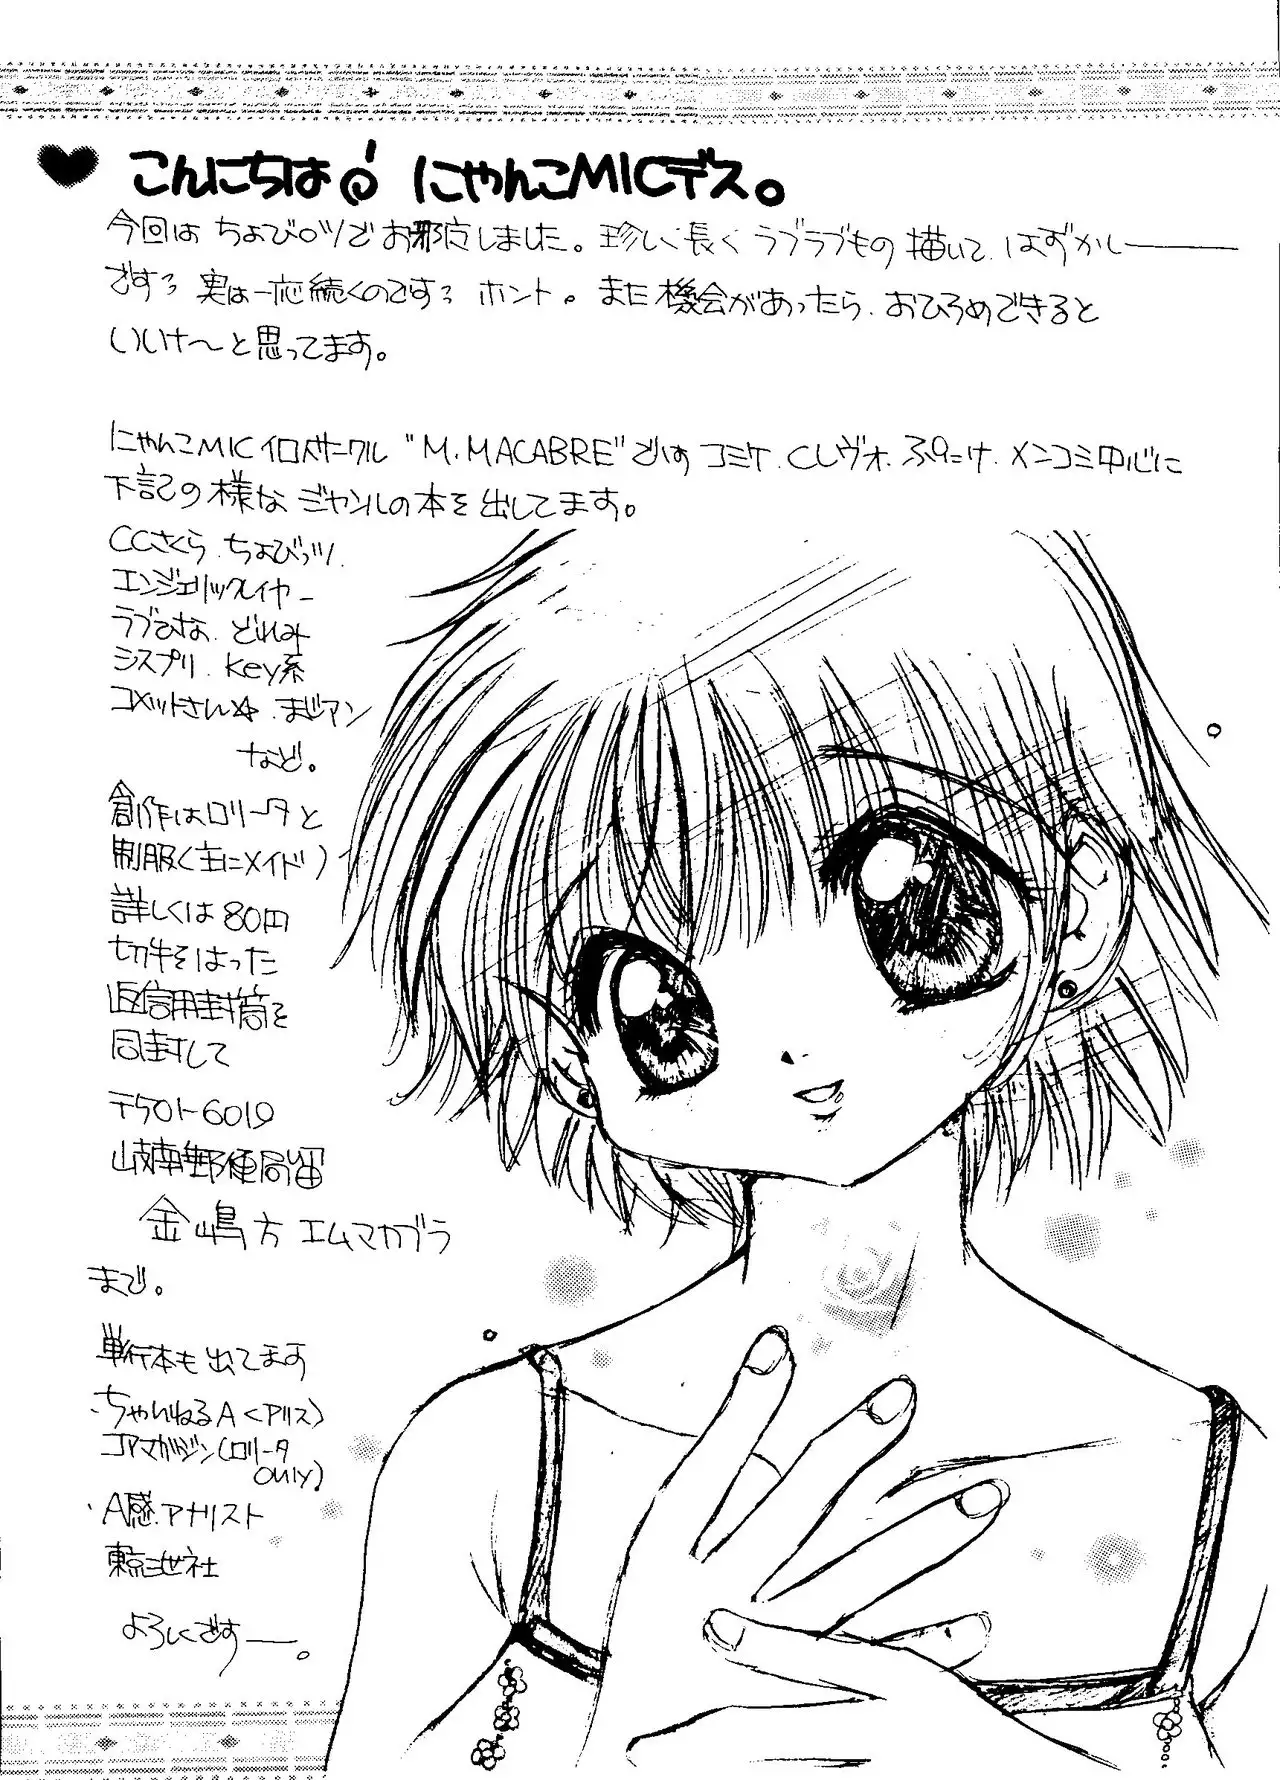 こんにちは にゃんこMICデス。
今回は ちょびッツでお邪魔しました。珍しく長くラブラブもの描いて、はずかしー
です 実は一応続くのです ホント。また機会があったら、おひろめできると
いいナ〜と思ってます。
にゃんこMIC サークル "M.MACABRE"です コミケ、Cレヴォ、ぷにけ、メンコミ中心に
下記の様なジャンルの本を出してます。
CCさくら、ちょびッツ、
エンジェリックレイヤー
ラブひな、どれみ
シスプリ、Key系
コメットさん☆、まじアン
など。
創作はロリータと
制服(主にメイド)
詳しくは80円
切手をはった
返信用封筒を
同封して
6019
郵便局留
金嶋方 エムマカブラ
まで。
単行本も出てます
・ちゃいねるA<アリス>
コアマガジン(ロリータ
only)
・A感アナリスト
東京三世社
よろしくですー。